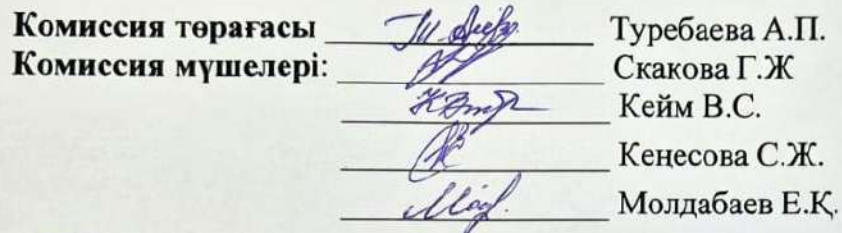 Комиссия төрағасы Туребаева А.П.
Комиссия мүшелері: Скакова Г.Ж
Кейм В.С.
Кеңесова С.Ж.
Молдабаев Е.Қ.